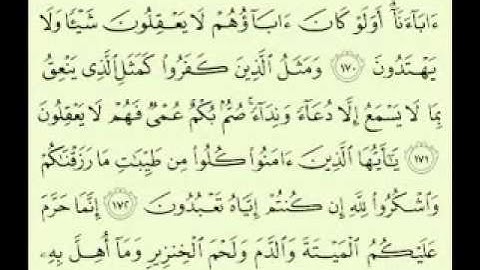 ءَابَآءَنَآ ۗ أَوَلَوْ كَانَ ءَابَآؤُهُمْ لَا يَعْقِلُونَ شَيْـًٔا وَلَا
يَهْتَدُونَ ١٧٠ وَمَثَلُ ٱلَّذِينَ كَفَرُوا۟ كَمَثَلِ ٱلَّذِى يَنْعِقُ
بِمَا لَا يَسْمَعُ إِلَّا دُعَآءً وَنِدَآءً ۚ صُمٌّۢ بُكْمٌ عُمْىٌ فَهُمْ لَا يَعْقِلُونَ
١٧١ يَـٰٓأَيُّهَا ٱلَّذِينَ ءَامَنُوا۟ كُلُوا۟ مِن طَيِّبَـٰتِ مَا رَزَقْنَـٰكُمْ
وَٱشْكُرُوا۟ لِلَّهِ إِن كُنتُمْ إِيَّاهُ تَعْبُدُونَ ١٧٢ إِنَّمَا حَرَّمَ
عَلَيْكُمُ ٱلْمَيْتَةَ وَٱلدَّمَ وَلَحْمَ ٱلْخِنزِيرِ وَمَآ أُهِلَّ بِهِۦ